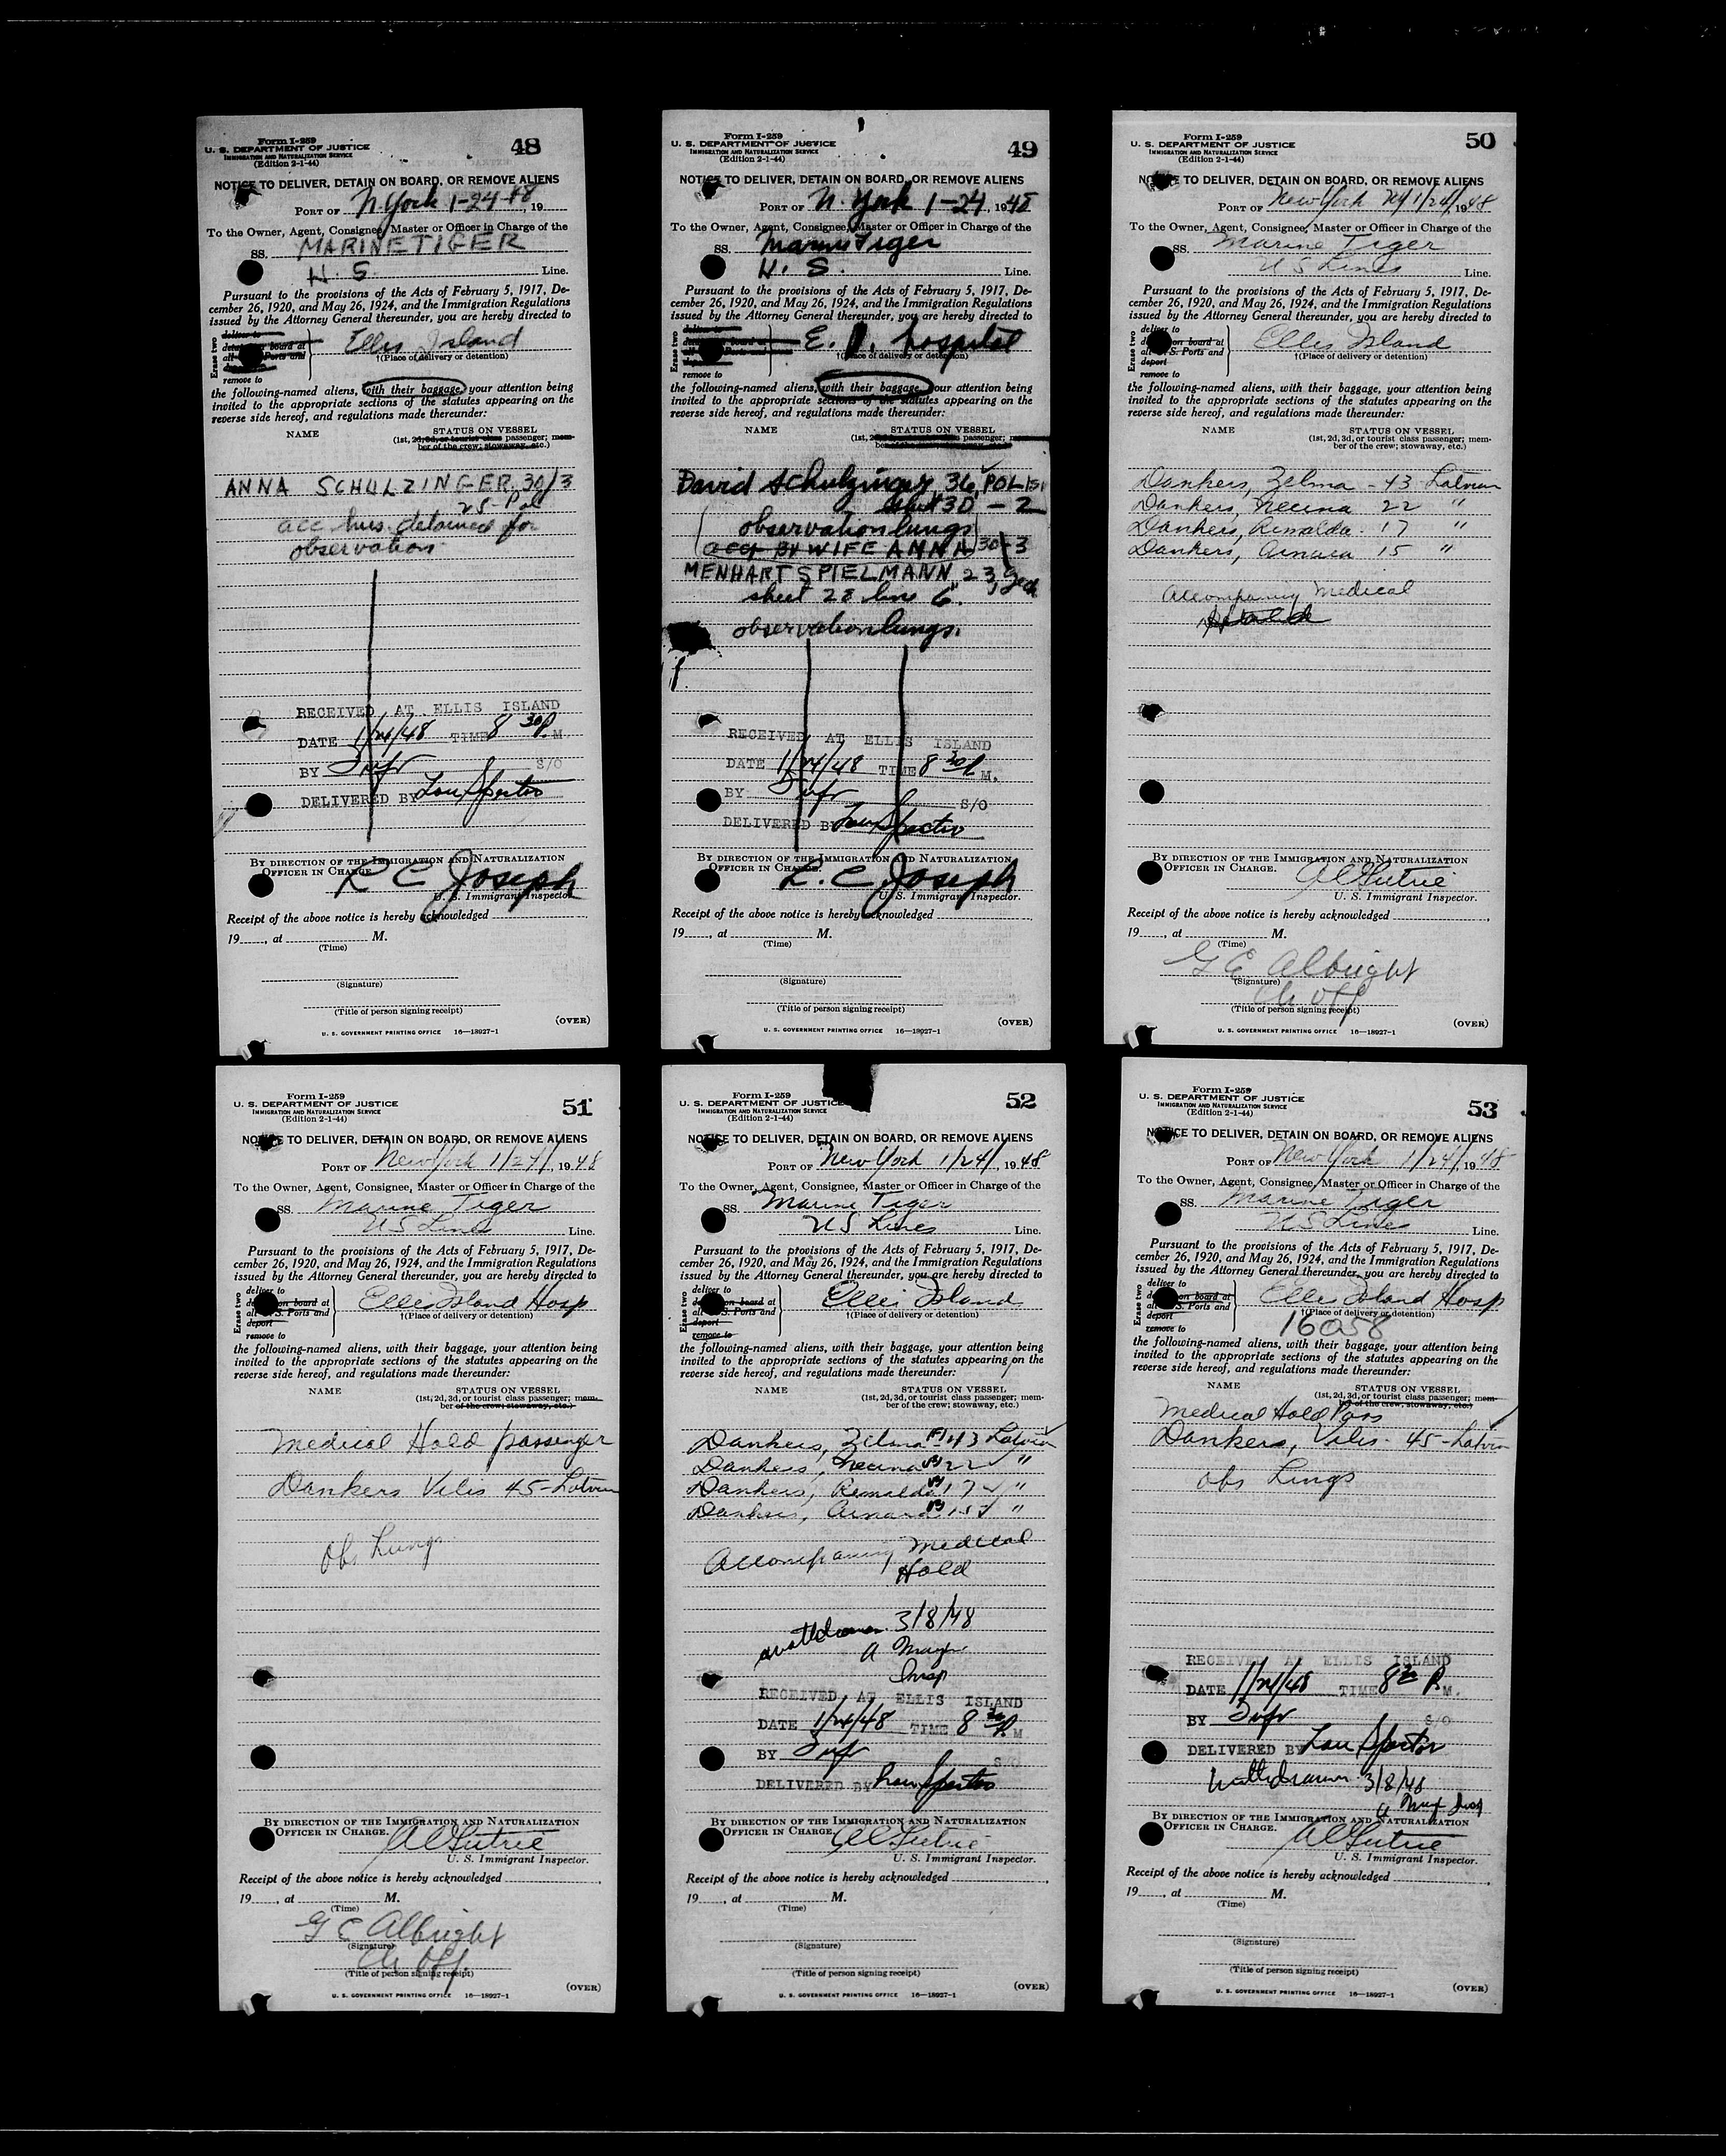 Form I-259
U. S. DEPARTMENT OF JUSTICE
IMMIGRATION AND NATURALIZATION SERVICE
(Edition 2-1-44)
48
NOTICE TO DELIVER, DETAIN ON BOARD, OR REMOVE ALIENS
PORT OF N. York 1-24-48, 19
To the Owner, Agent, Consignee, Master or Officer in Charge of the
SS. MARINE TIGER
U. S. Line.
Pursuant to the provisions of the Acts of February 5, 1917, De-
cember 26, 1920, and May 26, 1924, and the Immigration Regulations
issued by the Attorney General thereunder, you are hereby directed to
Erase two
deliver to
board at
Ports and
remove to
Ellis Island
†(Place of delivery or detention)
the following-named aliens, with their baggage, your attention being
invited to the appropriate sections of the statutes appearing on the
reverse side hereof, and regulations made thereunder:
NAME STATUS ON VESSEL
(1st, 2d, 3d, or tourist class passenger; mem-
ber of the crew; stowaway, etc.)
ANNA SCHULZINGER 30/3
25-Pol
acc hus. detained for
observation
RECEIVED AT ELLIS ISLAND
DATE 1/24/48 TIME 8 30 P.M
BY S/O
DELIVERED BY Lou Spector
BY DIRECTION OF THE IMMIGRATION AND NATURALIZATION
OFFICER IN CHARGE.
R C Joseph
U. S. Immigrant Inspector.
Receipt of the above notice is hereby acknowledged
19, at M.
(Time)
(Signature)
(Title of person signing receipt)
(OVER)
U. S. GOVERNMENT PRINTING OFFICE 16—18927-1
Form I-259
U. S. DEPARTMENT OF JUSTICE
IMMIGRATION AND NATURALIZATION SERVICE
(Edition 2-1-44)
49
NOTICE TO DELIVER, DETAIN ON BOARD, OR REMOVE ALIENS
PORT OF N. York 1-24, 1948
To the Owner, Agent, Consignee, Master or Officer in Charge of the
SS. Marine Tiger
U. S. Line.
Pursuant to the provisions of the Acts of February 5, 1917, De-
cember 26, 1920, and May 26, 1924, and the Immigration Regulations
issued by the Attorney General thereunder, you are hereby directed to
Erase two
remove to
E. I. hospital
†(Place of delivery or detention)
the following-named aliens, with their baggage, your attention being
invited to the appropriate sections of the statutes appearing on the
reverse side hereof, and regulations made thereunder:
NAME STATUS ON VESSEL
(1st, passenger;
David Schulzinger, 36, POLISH
sheet 30 - 2
observation lungs
acc BY WIFE ANNA 30-3
MENHART SPIELMANN 23,
sheet 28 line 6.
observation lungs.
RECEIVED AT ELLIS ISLAND
DATE 1/24/48 TIME 8 30 P M.
BY S/O
DELIVERED BY Lou Spector
BY DIRECTION OF THE IMMIGRATION AND NATURALIZATION
OFFICER IN CHARGE.
R. C. Joseph
U. S. Immigrant Inspector.
Receipt of the above notice is hereby acknowledged
19, at M.
(Time)
(Signature)
(Title of person signing receipt)
(OVER)
U. S. GOVERNMENT PRINTING OFFICE 16—18927-1
Form I-259
U. S. DEPARTMENT OF JUSTICE
IMMIGRATION AND NATURALIZATION SERVICE
(Edition 2-1-44)
50
NOTICE TO DELIVER, DETAIN ON BOARD, OR REMOVE ALIENS
PORT OF New York NY 1/24/, 1948
To the Owner, Agent, Consignee, Master or Officer in Charge of the
SS. Marine Tiger
US Lines Line.
Pursuant to the provisions of the Acts of February 5, 1917, De-
cember 26, 1920, and May 26, 1924, and the Immigration Regulations
issued by the Attorney General thereunder, you are hereby directed to
Erase two
deliver to
on board at
all U. S. Ports and
deport
remove to
Ellis Island
†(Place of delivery or detention)
the following-named aliens, with their baggage, your attention being
invited to the appropriate sections of the statutes appearing on the
reverse side hereof, and regulations made thereunder:
NAME STATUS ON VESSEL
(1st, 2d, 3d, or tourist class passenger; mem-
ber of the crew; stowaway, etc.)
Dankers, Zelma - 43 Latvian
Dankers, 22 "
Dankers, Remalda - 17 "
Dankers, 15 "
Accompanying Medical
BY DIRECTION OF THE IMMIGRATION AND NATURALIZATION
OFFICER IN CHARGE.
U. S. Immigrant Inspector.
Receipt of the above notice is hereby acknowledged
19, at M.
(Time)
G E Albright
(Signature)
Ch Off
(Title of person signing receipt)
(OVER)
U. S. GOVERNMENT PRINTING OFFICE 16—18927-1
Form I-259
U. S. DEPARTMENT OF JUSTICE
IMMIGRATION AND NATURALIZATION SERVICE
(Edition 2-1-44)
51
NOTICE TO DELIVER, DETAIN ON BOARD, OR REMOVE ALIENS
PORT OF New York 1/24/, 1948
To the Owner, Agent, Consignee, Master or Officer in Charge of the
SS. Marine Tiger
US Lines Line.
Pursuant to the provisions of the Acts of February 5, 1917, De-
cember 26, 1920, and May 26, 1924, and the Immigration Regulations
issued by the Attorney General thereunder, you are hereby directed to
Erase two
deliver to
on board at
all U. S. Ports and
deport
remove to
Ellis Island Hosp
†(Place of delivery or detention)
the following-named aliens, with their baggage, your attention being
invited to the appropriate sections of the statutes appearing on the
reverse side hereof, and regulations made thereunder:
NAME STATUS ON VESSEL
(1st, 2d, 3d, or tourist class passenger; mem-
ber of the crew; stowaway, etc.)
Medical Hold passenger
Dankers Vilis 45-Latvian
Obs Lungs
BY DIRECTION OF THE IMMIGRATION AND NATURALIZATION
OFFICER IN CHARGE.
U. S. Immigrant Inspector.
Receipt of the above notice is hereby acknowledged
19, at M.
(Time)
G E Albright
(Signature)
Ch Off.
(Title of person signing receipt)
(OVER)
U. S. GOVERNMENT PRINTING OFFICE 16—18927-1
Form I-259
U. S. DEPARTMENT OF JUSTICE
IMMIGRATION AND NATURALIZATION SERVICE
(Edition 2-1-44)
52
NOTICE TO DELIVER, DETAIN ON BOARD, OR REMOVE ALIENS
PORT OF New York 1/24/, 1948
To the Owner, Agent, Consignee, Master or Officer in Charge of the
SS. Marine Tiger
US Lines Line.
Pursuant to the provisions of the Acts of February 5, 1917, De-
cember 26, 1920, and May 26, 1924, and the Immigration Regulations
issued by the Attorney General thereunder, you are hereby directed to
Erase two
deliver to
on board at
all U. S. Ports and
deport
remove to
Ellis Island
†(Place of delivery or detention)
the following-named aliens, with their baggage, your attention being
invited to the appropriate sections of the statutes appearing on the
reverse side hereof, and regulations made thereunder:
NAME STATUS ON VESSEL
(1st, 2d, 3d, or tourist class passenger; mem-
ber of the crew; stowaway, etc.)
Dankers, Zelma 43 Latvian
Dankers, 22 "
Dankers, Remalda 17 "
Dankers, 15 "
Accompanying Medical
Hold
withdrawn 3/8/48
Insp
RECEIVED AT ELLIS ISLAND
DATE 1/24/48 TIME 8 30 P M
BY S/O
DELIVERED BY Lou Spector
BY DIRECTION OF THE IMMIGRATION AND NATURALIZATION
OFFICER IN CHARGE.
U. S. Immigrant Inspector.
Receipt of the above notice is hereby acknowledged
19, at M.
(Time)
(Signature)
(Title of person signing receipt)
(OVER)
U. S. GOVERNMENT PRINTING OFFICE 16—18927-1
Form I-259
U. S. DEPARTMENT OF JUSTICE
IMMIGRATION AND NATURALIZATION SERVICE
(Edition 2-1-44)
53
NOTICE TO DELIVER, DETAIN ON BOARD, OR REMOVE ALIENS
PORT OF New York 1/24/, 1948
To the Owner, Agent, Consignee, Master or Officer in Charge of the
SS. Marine Tiger
US Lines Line.
Pursuant to the provisions of the Acts of February 5, 1917, De-
cember 26, 1920, and May 26, 1924, and the Immigration Regulations
issued by the Attorney General thereunder, you are hereby directed to
Erase two
deliver to
on board at
all U. S. Ports and
deport
remove to
Ellis Island Hosp
†(Place of delivery or detention)
16058
the following-named aliens, with their baggage, your attention being
invited to the appropriate sections of the statutes appearing on the
reverse side hereof, and regulations made thereunder:
NAME STATUS ON VESSEL
(1st, 2d, 3d, or tourist class passenger; mem-
ber of the crew; stowaway, etc.)
Medical Hold Pass
Dankers, Vilis - 45-Latvian
Obs Lungs
RECEIVED AT ELLIS ISLAND
DATE 1/24/48 TIME 8 30 P.M.
BY S/O
DELIVERED BY Lou Spector
Withdrawn 3/8/48
Insp
BY DIRECTION OF THE IMMIGRATION AND NATURALIZATION
OFFICER IN CHARGE.
U. S. Immigrant Inspector.
Receipt of the above notice is hereby acknowledged
19, at M.
(Time)
(Signature)
(Title of person signing receipt)
(OVER)
U. S. GOVERNMENT PRINTING OFFICE 16—18927-1